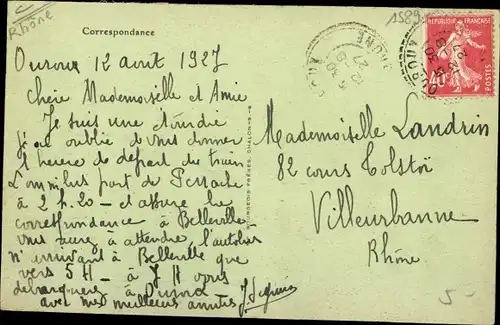 Rhône
1589
Correspondance
Ouroux 12 avril 1927
Chère Mademoiselle et Amie
Je suis une étourdie
j'ai oublié de vous donner
l'heure de départ du train
L'omnibus part de Perrache
à 2 h. 20 - et assure la
correspondance à Belleville -
vous aurez à attendre, l'autobus
n'arrivant à Belleville que
vers 5 H - à 7 H vous
débarquerez à Ouroux
avec mes meilleures amitiés
BOURGEOIS FRÈRES, CHALON-S-S
OUROUX
RHONE
REPUBLIQUE FRANÇAISE
POSTES
Mademoiselle Landrin
82 cours Tolstoï
Villeurbanne
Rhône
5 -